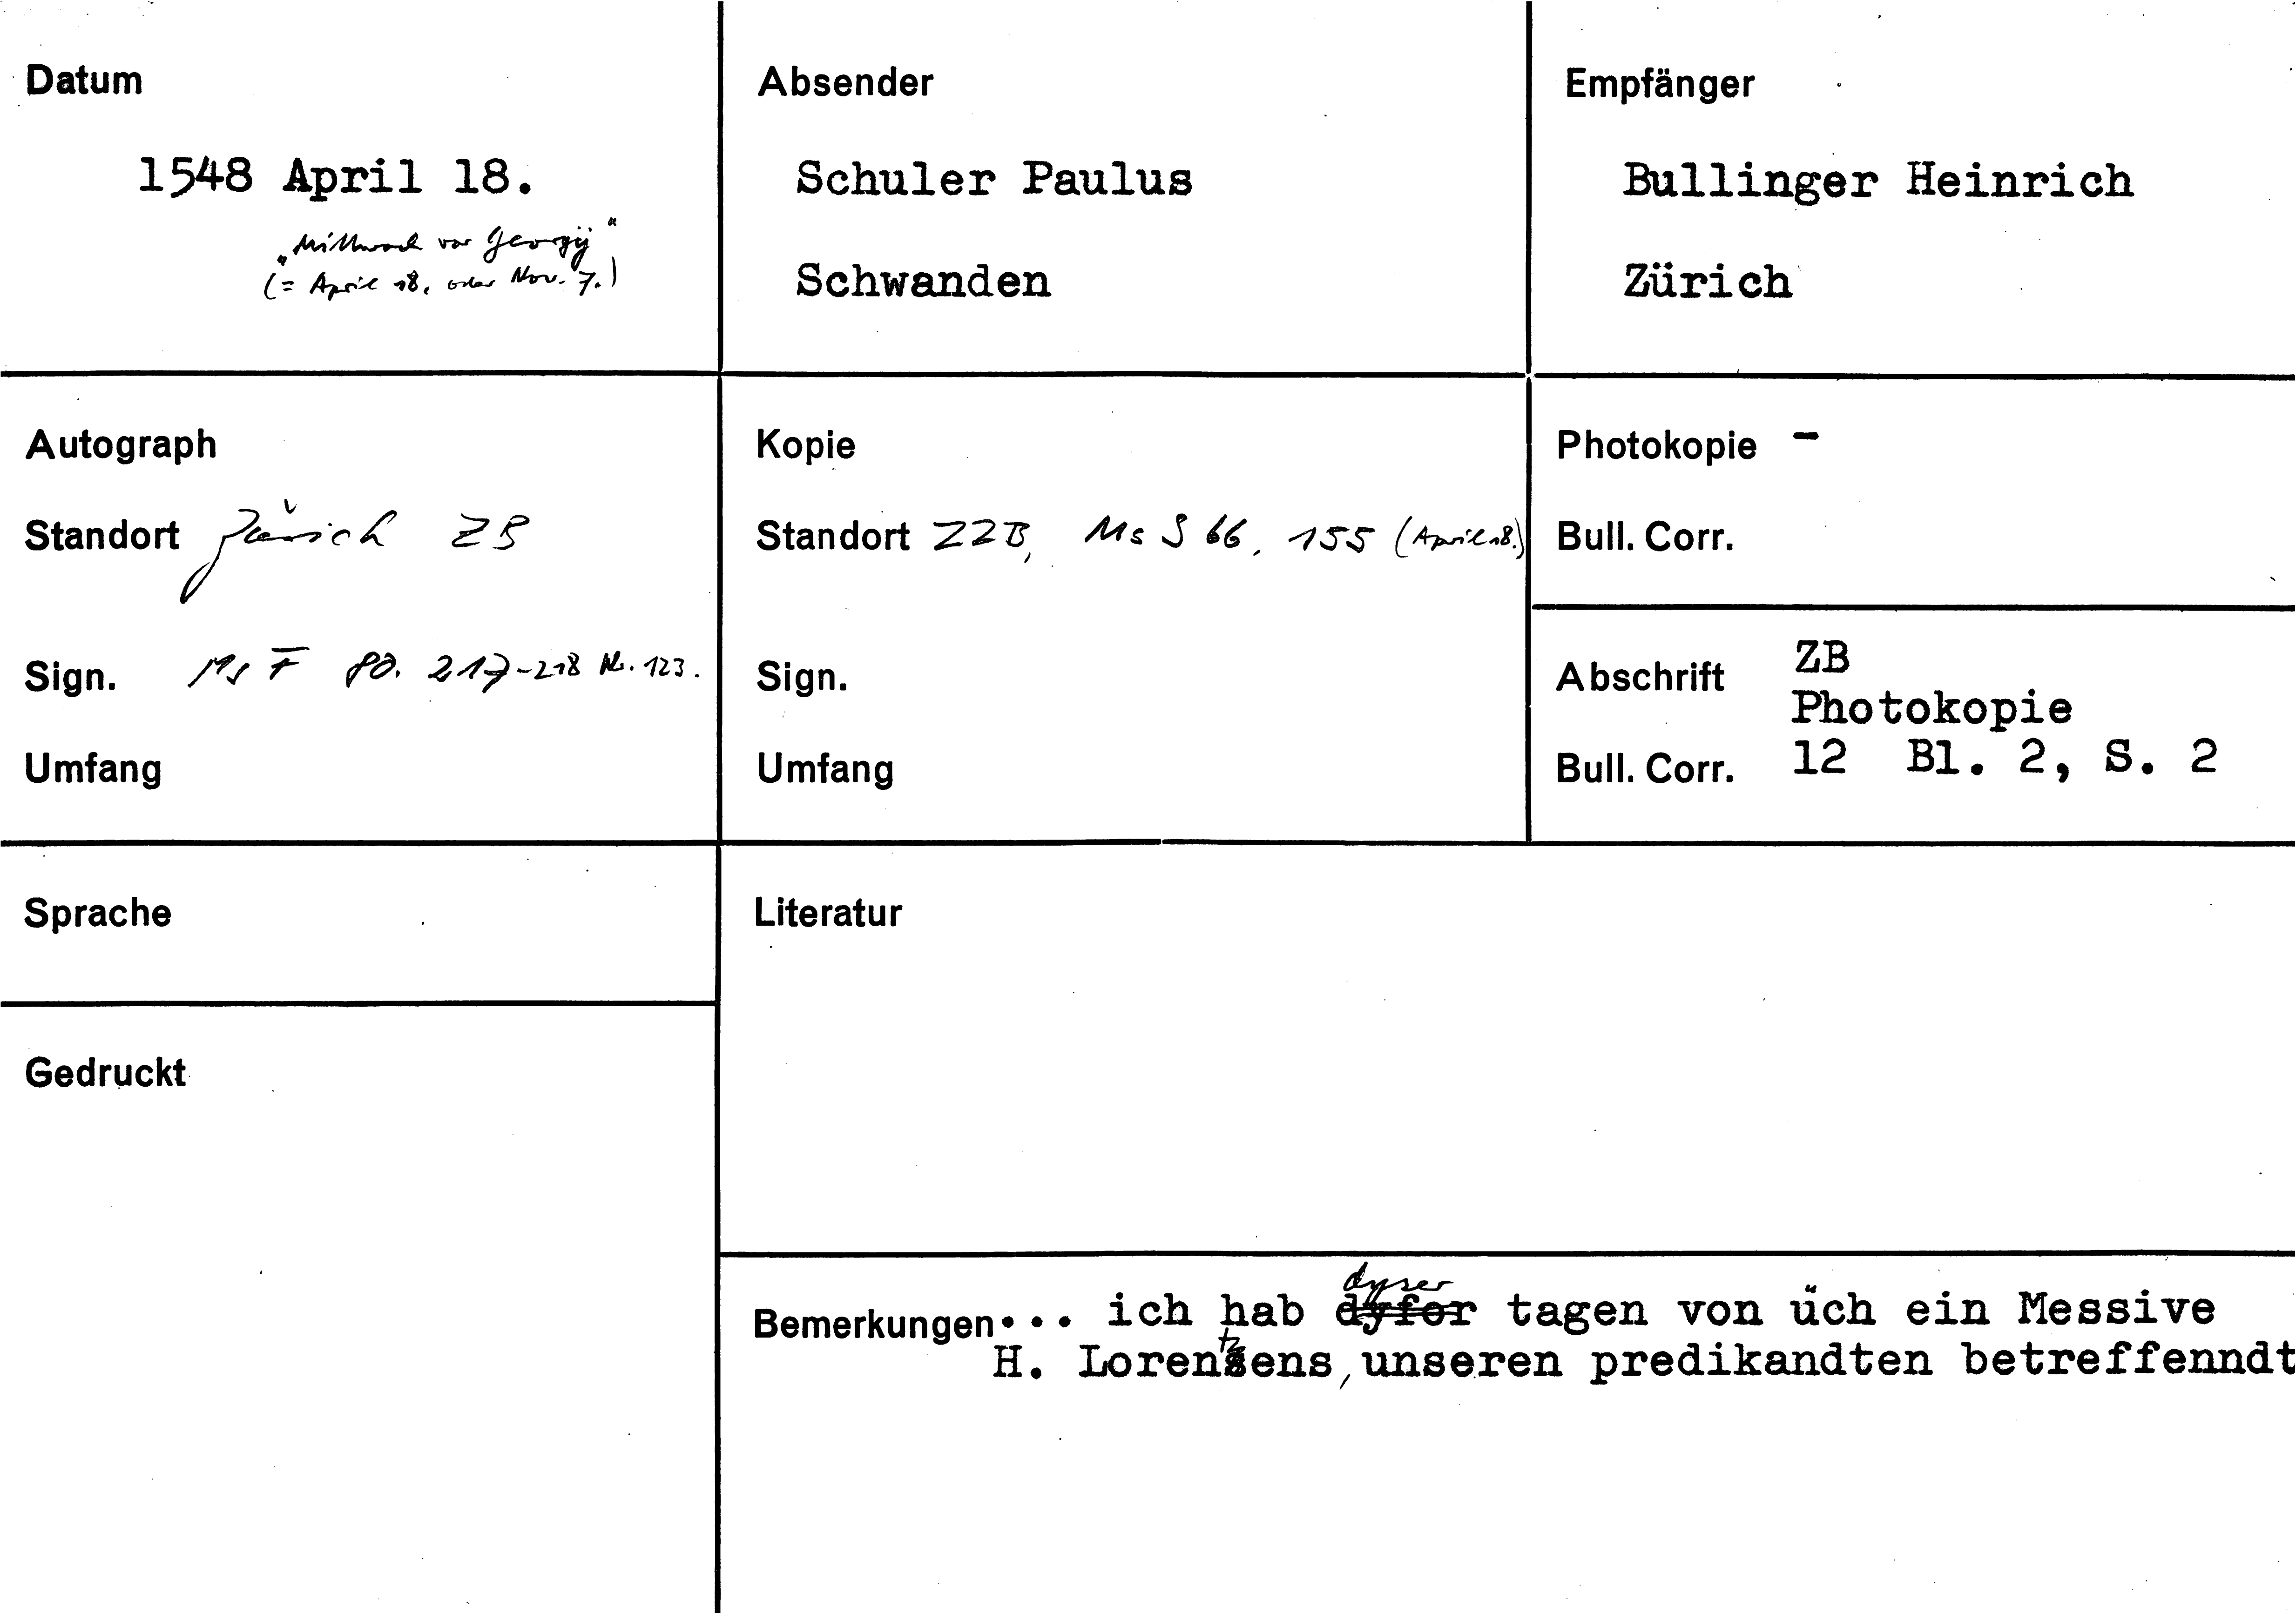 Datum
1548 April 18.
„Mittwoch vor Georgij"
(= April 18. oder Nov. 7.)
Absender
Schuler Paulus
Schwanden
Empfänger
Bullinger Heinrich
Zürich
Autograph
Standort Zürich ZB
Sign. Ms F 80. 217-218 Nr. 123.
Umfang
Kopie
Standort ZZB, Ms S 66, 155 (April 18.)
Sign.
Umfang
Photokopie -
Bull. Corr.
Abschrift ZB
Photokopie
Bull. Corr. 12 Bl. 2, S. 2
Sprache
Literatur
Gedruckt
dyser
Bemerkungen... ich hab dyfer tagen von üch ein Messive
H. Lorentzens, unseren predikandten betreffenndt